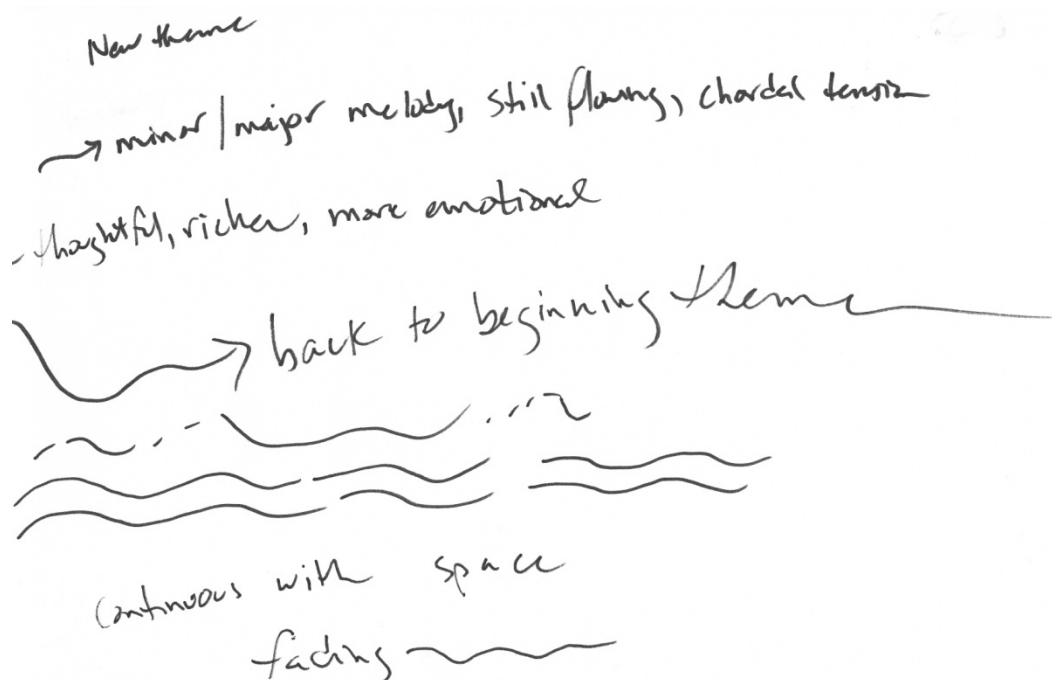 New theme
→ minor/major melody, still flowing, chordal tension
- thoughtful, richer, more emotional
→ back to beginning theme
continuous with space
fading